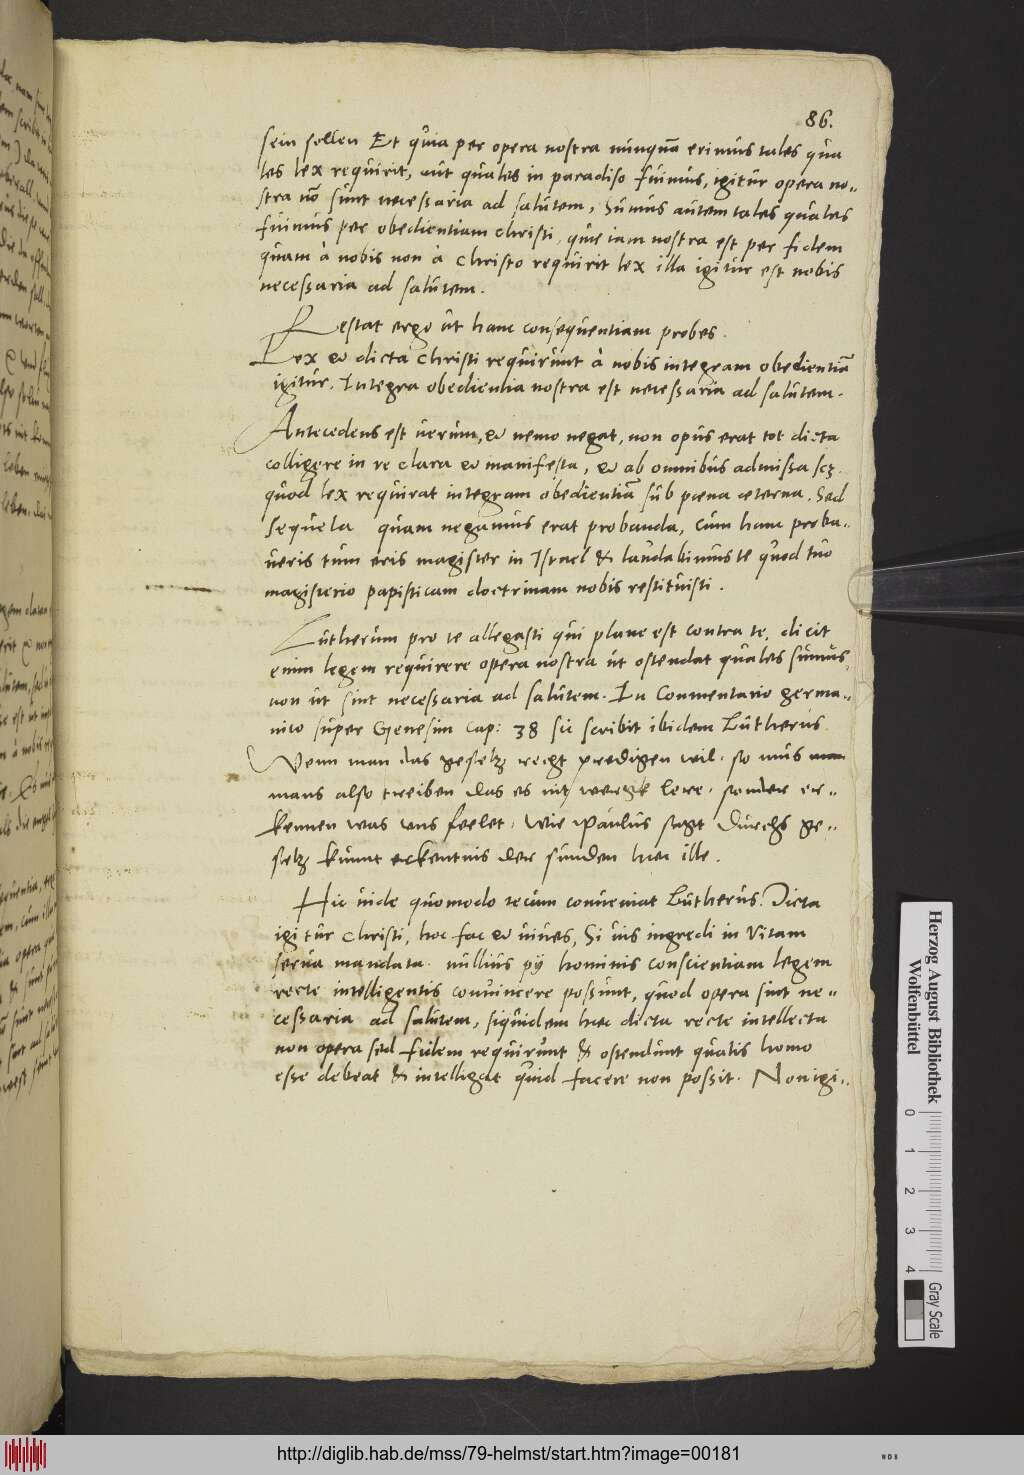 86.
sein sollen Et quia per opera nostra nunquā erimus tales qua
les lex requirit, aut quales in paradiso fuimus, igitur opera no..
stra nō sunt necessaria ad salutem, Sumus autem tales quales
fuimus per obedientiam christi, quæ iam nostra est per fidem
quam à nobis non à Christo requirit lex illa igitur est nobis
necessaria ad salutem.
Restat ergo ut hanc consequentiam probes.
Lex & dicta Christi requirunt à nobis integram obedientiā
igitur, Integra obedientia nostra est necessaria ad salutem.
Antecedens est uerum, & nemo negat, non opus erat tot dicta
colligere in re clara & manifesta, & ab omnibus admissa scz.
quod lex requirat integram obedientiā sub pœna æterna. Sed
sequela quam negamus erat probanda, Cum hanc proba..
ueris tum eris magister in Israel & laudabimus te quod tuo
magisterio papisticam doctrinam nobis restituisti.
Lutherum pro te allegasti qui plane est contra te, dicit
enim legem requirere opera nostra ut ostendat quales sumus,
non ut sint necessaria ad salutem. In Commentario germa..
nico super Genesim Cap: 38 sic scribit ibidem Lutherus.
Wenn man das gesetz recht predigen wil, so mus
mans also treiben das es nit werck lere, sonder er..
kennen was uns feelet, wie Paulus sagt Durchs ge..
setz kumt erkentnis der sunden hæc ille.
Hic uide quomodo tecum conueniat Lutherus? Dicta
igitur Christi, hoc fac & uiues, Si uis ingredi in Vitam
serua mandata. nullius pij hominis conscientiam legem
recte intelligentis conuincere possunt, quod opera sint ne..
cessaria ad salutem, siquidem hæc dicta recte intellecta
non opera sed fidem requirunt & ostendunt qualis homo
esse debeat & intelligat quid facere non possit. Non igi..
Herzog August Bibliothek
Wolfenbüttel
0 1 2 3 4
Gray Scale
http://diglib.hab.de/mss/79-helmst/start.htm?image=00181